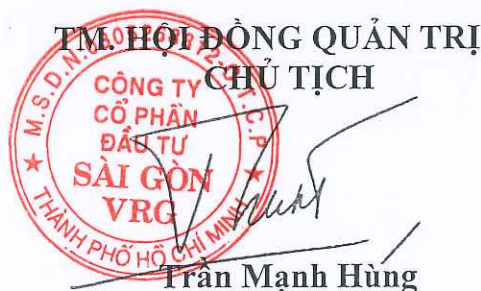 TM. HỘI ĐỒNG QUẢN TRỊ
CHỦ TỊCH
CÔNG TY
CỔ PHẦN
ĐẦU TƯ
SÀI GÒN
VRG
THÀNH PHỐ HỒ CHÍ MINH
Trần Mạnh Hùng